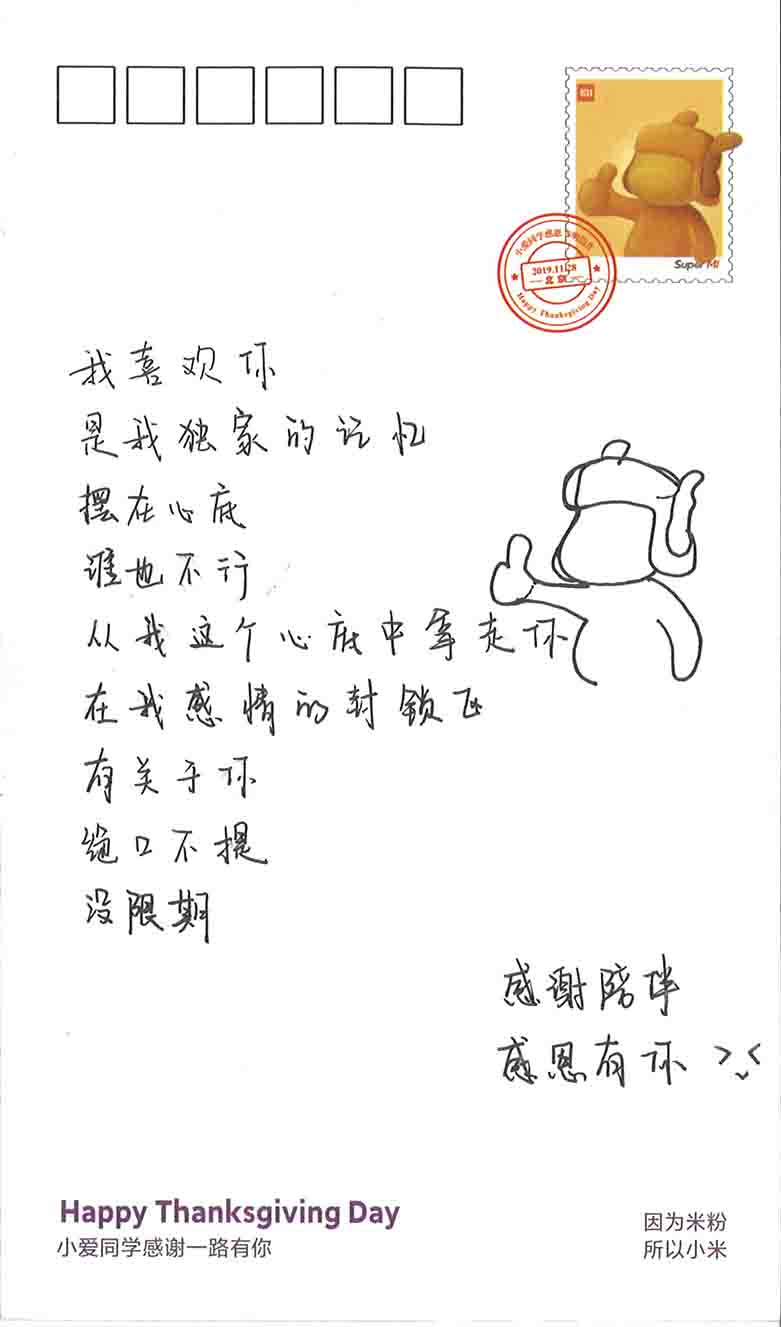 MI
Super MI
小爱同学感恩
2019.11.28
北京
Happy Thanksgiving Day
我喜欢你
是我独家的记忆
摆在心底
谁也不行
从我这个心底中拿走你
在我感情的封锁区
有关于你
绝口不提
没限期
感谢陪伴
感恩有你
Happy Thanksgiving Day
小爱同学感谢一路有你
因为米粉
所以小米